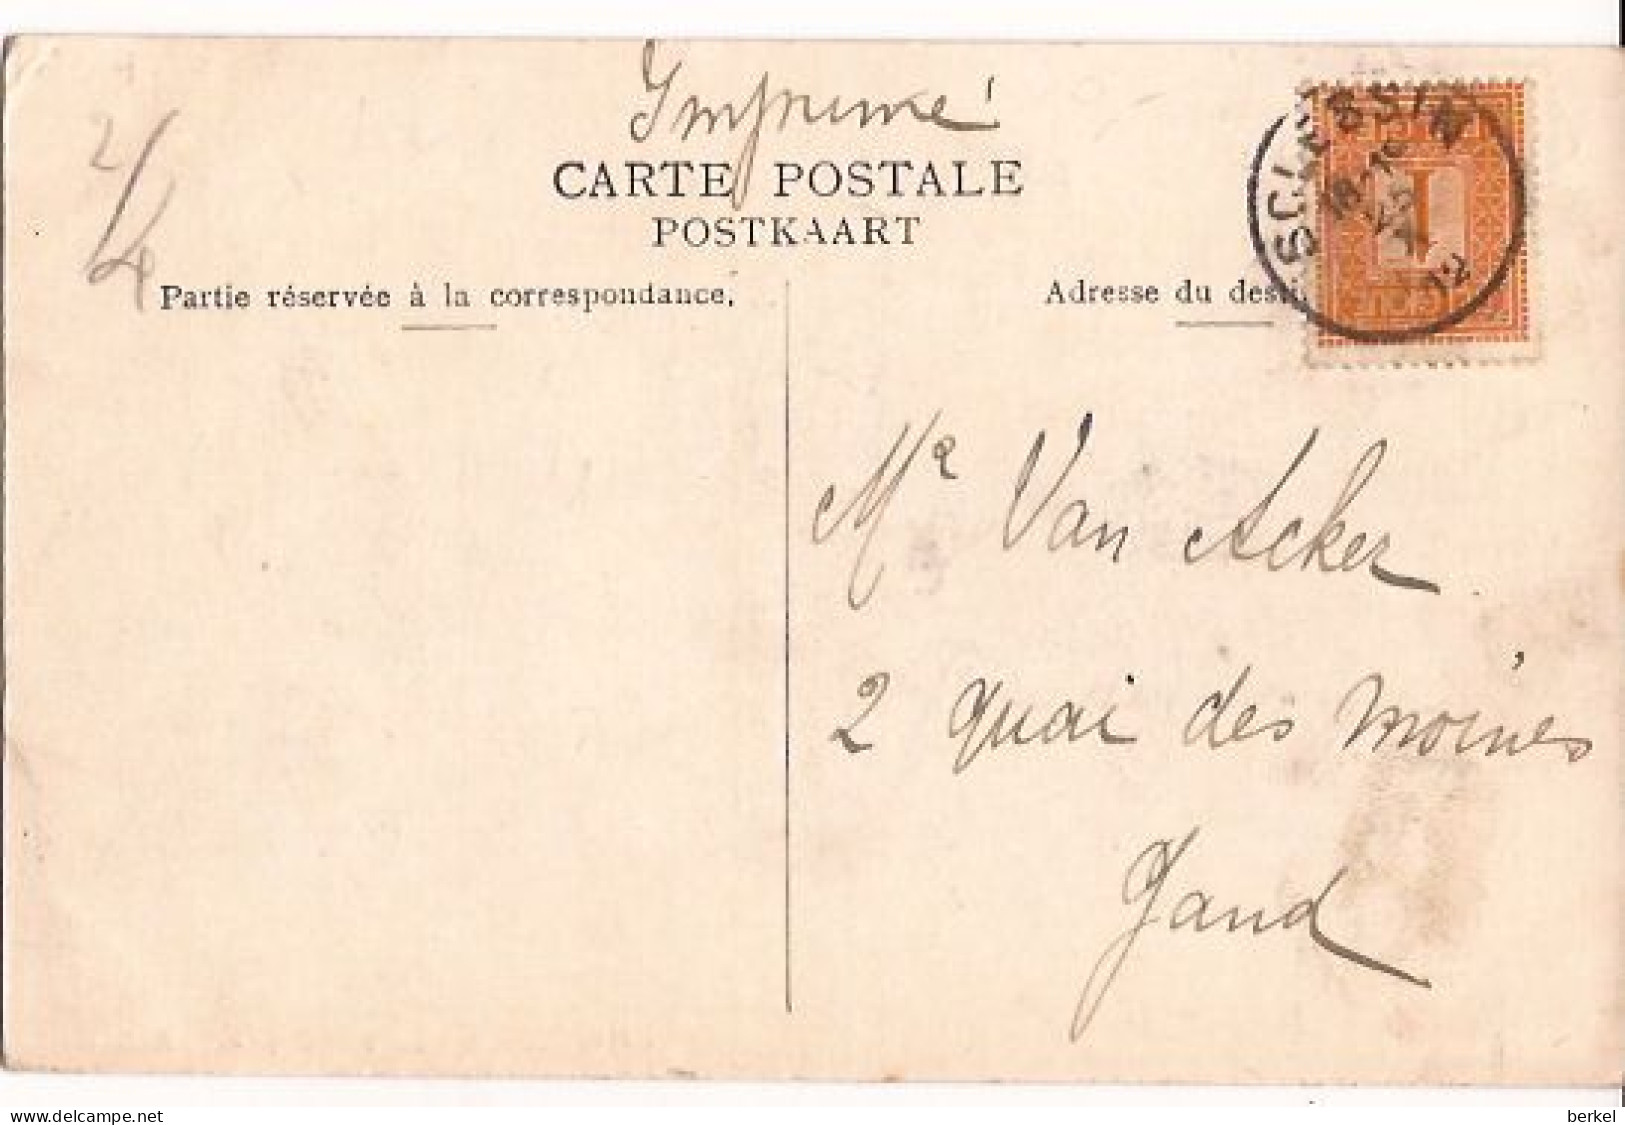 Imprimé
2/4
CARTE POSTALE
POSTKAART
Partie réservée à la correspondance.
Adresse du desti
SCLESSIN
18-19
12
1
Mr Van Acker
2 quai des Moines
Gand
delcampe.net
berkel